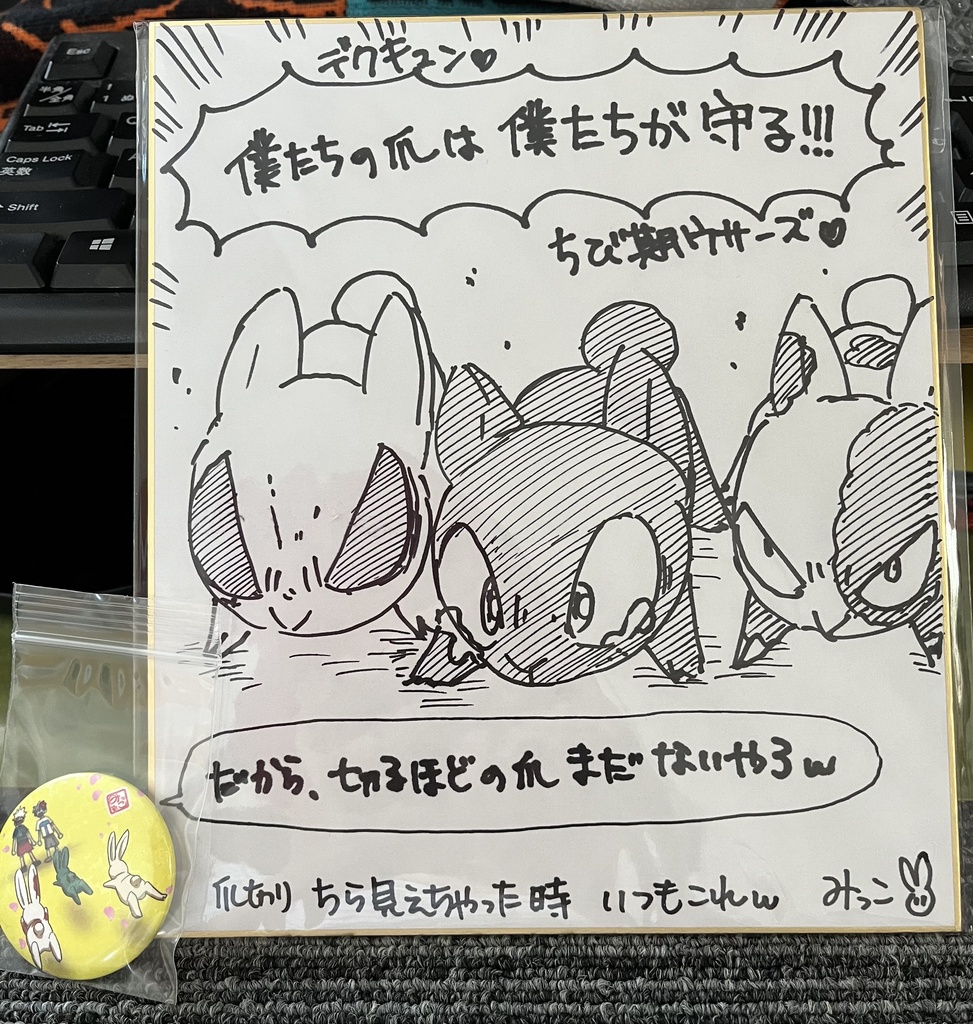 デクギュン♡
僕たちの爪は 僕たちが 守る!!!
ちび期ウサーズ♡
だから、切るほどの爪 まだ ないやろw
爪切り ちら見えちゃった時 いつもこれw みっこ
Esc
半角/
全角
1
ぬ
Tab
Caps Lock
英数
Shift